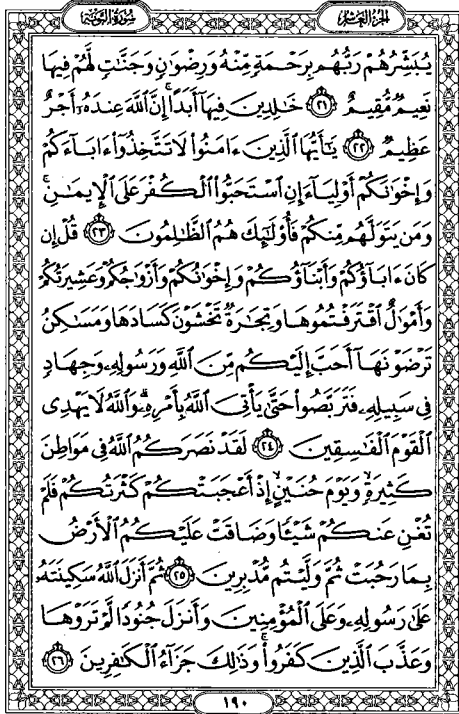 الجزء العاشر
سورة التوبة
يُبَشِّرُهُمْ رَبُّهُم بِرَحْمَةٍ مِّنْهُ وَرِضْوَٰنٍ وَجَنَّٰتٍ لَّهُمْ فِيهَا
نَعِيمٌ مُّقِيمٌ ﴿٢١﴾ خَٰلِدِينَ فِيهَآ أَبَدًا ۚ إِنَّ ٱللَّهَ عِندَهُۥٓ أَجْرٌ
عَظِيمٌ ﴿٢٢﴾ يَٰٓأَيُّهَا ٱلَّذِينَ ءَامَنُوا۟ لَا تَتَّخِذُوٓا۟ ءَابَآءَكُمْ
وَإِخْوَٰنَكُمْ أَوْلِيَآءَ إِنِ ٱسْتَحَبُّوا۟ ٱلْكُفْرَ عَلَى ٱلْإِيمَٰنِ ۚ
وَمَن يَتَوَلَّهُم مِّنكُمْ فَأُو۟لَٰٓئِكَ هُمُ ٱلظَّٰلِمُونَ ﴿٢٣﴾ قُلْ إِن
كَانَ ءَابَآؤُكُمْ وَأَبْنَآؤُكُمْ وَإِخْوَٰنُكُمْ وَأَزْوَٰجُكُمْ وَعَشِيرَتُكُمْ
وَأَمْوَٰلٌ ٱقْتَرَفْتُمُوهَا وَتِجَٰرَةٌ تَخْشَوْنَ كَسَادَهَا وَمَسَٰكِنُ
تَرْضَوْنَهَآ أَحَبَّ إِلَيْكُم مِّنَ ٱللَّهِ وَرَسُولِهِۦ وَجِهَادٍ
فِى سَبِيلِهِۦ فَتَرَبَّصُوا۟ حَتَّىٰ يَأْتِىَ ٱللَّهُ بِأَمْرِهِۦ ۗ وَٱللَّهُ لَا يَهْدِى
ٱلْقَوْمَ ٱلْفَٰسِقِينَ ﴿٢٤﴾ لَقَدْ نَصَرَكُمُ ٱللَّهُ فِى مَوَاطِنَ
كَثِيرَةٍ ۙ وَيَوْمَ حُنَيْنٍ ۙ إِذْ أَعْجَبَتْكُمْ كَثْرَتُكُمْ فَلَمْ
تُغْنِ عَنكُمْ شَيْـًٔا وَضَاقَتْ عَلَيْكُمُ ٱلْأَرْضُ
بِمَا رَحُبَتْ ثُمَّ وَلَّيْتُم مُّدْبِرِينَ ﴿٢٥﴾ ثُمَّ أَنزَلَ ٱللَّهُ سَكِينَتَهُۥ
عَلَىٰ رَسُولِهِۦ وَعَلَى ٱلْمُؤْمِنِينَ وَأَنزَلَ جُنُودًا لَّمْ تَرَوْهَا
وَعَذَّبَ ٱلَّذِينَ كَفَرُوا۟ ۚ وَذَٰلِكَ جَزَآءُ ٱلْكَٰفِرِينَ ﴿٢٦﴾
١٩٠